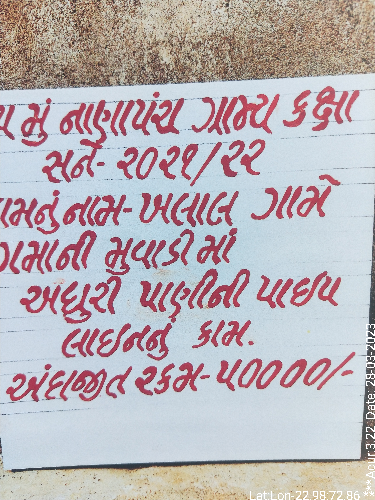 ૫ મું નાણાપંચ ગ્રામ્ય કક્ષા
સને- ૨૦૨૧/૨૨
ામનું નામ- ખલાલ ગામે
ગમાની મુવાડી માં
અધુરી પાણીની પાઇપ
લાઇનનું કામ.
અંદાજીત રકમ- ૫૦૦૦૦/-
Lat Lon- 22.98 72.86 ***Acur 3.22, Date: 28-03-2023